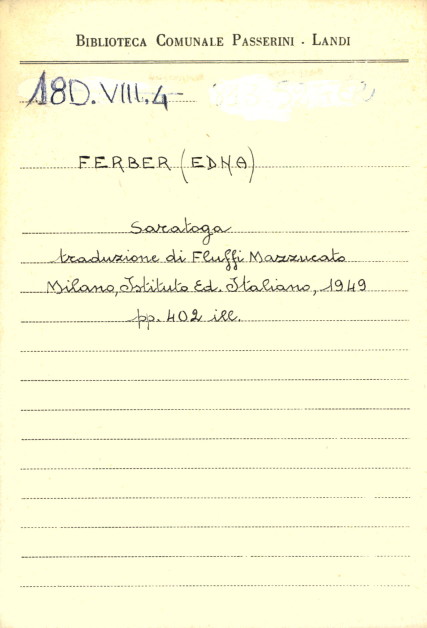 BIBLIOTECA COMUNALE PASSERINI - LANDI
18D.VIII.4
FERBER (EDNA)
Saratoga
traduzione di Fluffi Mazzucato
Milano, Istituto Ed. Italiano, 1949
pp. 402 ill.